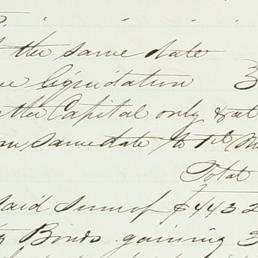 the same date
liquidation 3
the Capital only & at
same date to 1st M
Total
said sum of $443 2
Bonds gaining 3